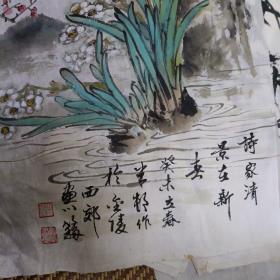 诗家清
景在新
春
癸未立春
半邨作
於金陵
西郊